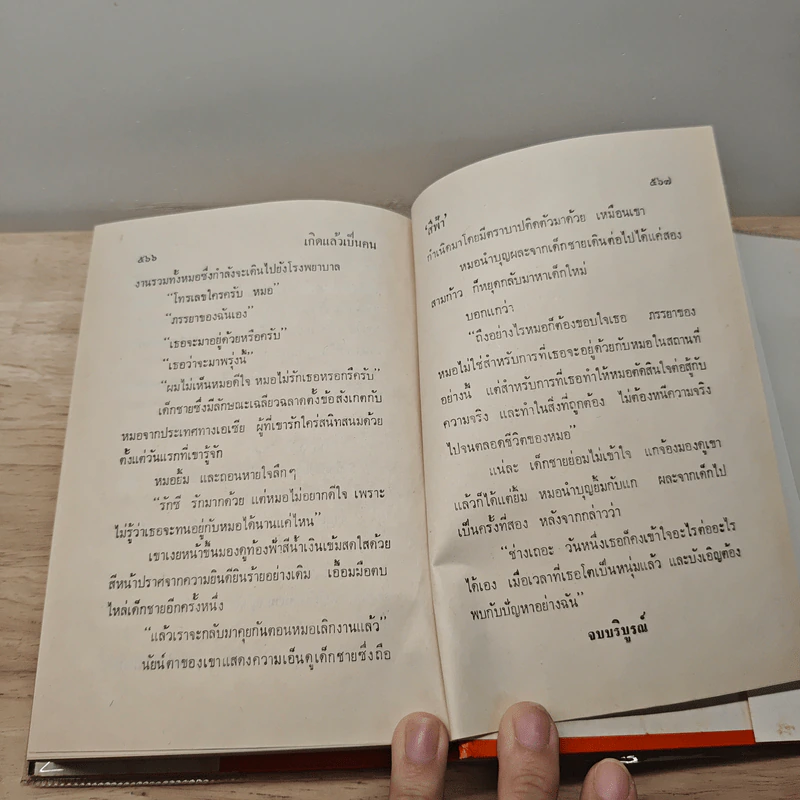 ๕๖๖
เกิดแล้วเป็นคน
งานรวมทั้งหมอซึ่งกำลังจะเดินไปยังโรงพยาบาล
“โทรเลขใครครับ หมอ”
“ภรรยาของฉันเอง”
“เธอจะมาอยู่ด้วยหรือครับ”
“เธอว่าจะมาพรุ่งนี้”
“ผมไม่เห็นหมอดีใจ หมอไม่รักเธอหรอกรึครับ”
เด็กชายซึ่งมีลักษณะเฉลียวฉลาดตั้งข้อสังเกตกับ
หมอจากประเทศทางเอเซีย ผู้ที่เขารักใคร่สนิทสนมด้วย
ตั้งแต่วันแรกที่เขารู้จัก
หมอยิ้ม และถอนหายใจลึกๆ
“รักซี รักมากด้วย แต่หมอไม่อยากดีใจ เพราะ
ไม่รู้ว่าเธอจะทนอยู่กับหมอได้นานแค่ไหน”
เขาเงยหน้าขึ้นมองดูท้องฟ้าสีน้ำเงินเข้มสดใสด้วย
สีหน้าปราศจากความยินดียินร้ายอย่างเดิม เอื้อมมือตบ
ไหล่เด็กชายอีกครั้งหนึ่ง
“แล้วเราจะกลับมาคุยกันตอนหมอเลิกงานแล้ว”
นัยน์ตาของเขาแสดงความเอ็นดูเด็กชายซึ่งถือ
‘สีฟ้า’
๕๖๗
กำเนิดมาโดยมีตราบาปติดตัวมาด้วย เหมือนเขา
หมอนำบุญผละจากเด็กชายเดินต่อไปได้แค่สอง
สามก้าว ก็หยุดกลับมาหาเด็กใหม่
บอกแกว่า
“ถึงอย่างไรหมอก็ต้องขอบใจเธอ ภรรยาของ
หมอไม่ใช่สำหรับการที่เธอจะอยู่ด้วยกับหมอในสถานที่
อย่างนี้ แต่สำหรับการที่เธอทำให้หมอตัดสินใจต่อสู้กับ
ความจริง และทำในสิ่งที่ถูกต้อง ไม่ต้องหนีความจริง
ไปจนตลอดชีวิตของหมอ”
แน่ละ เด็กชายย่อมไม่เข้าใจ แกจ้องมองดูเขา
แล้วก็ได้แต่ยิ้ม หมอนำบุญยิ้มกับแก ผละจากเด็กไป
เป็นครั้งที่สอง หลังจากกล่าวว่า
“ช่างเถอะ วันหนึ่งเธอก็คงเข้าใจอะไรต่ออะไร
ได้เอง เมื่อเวลาที่เธอโตเป็นหนุ่มแล้ว และบังเอิญต้อง
พบกับปัญหาอย่างฉัน”
จบบริบูรณ์